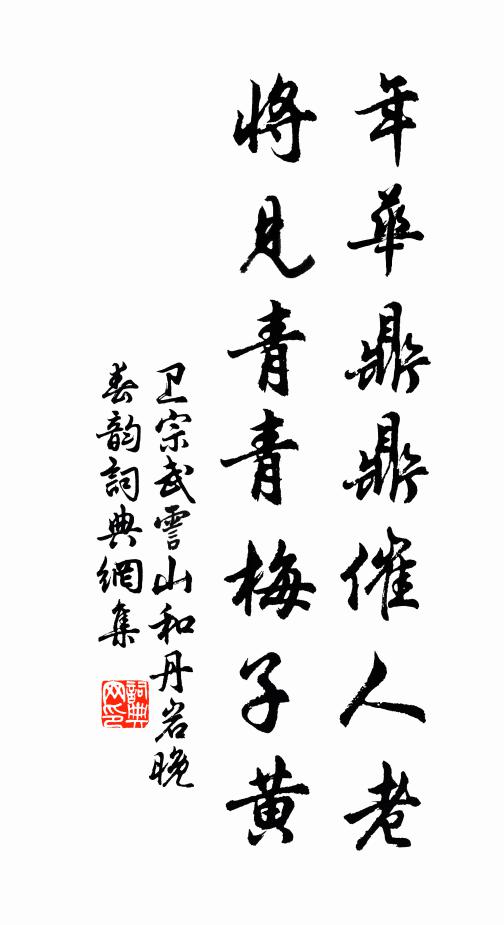 年華鼎鼎催人老
將見青青梅子黃
卫宗武雲山和丹岩晚
春韵詞典網集
詞典网印